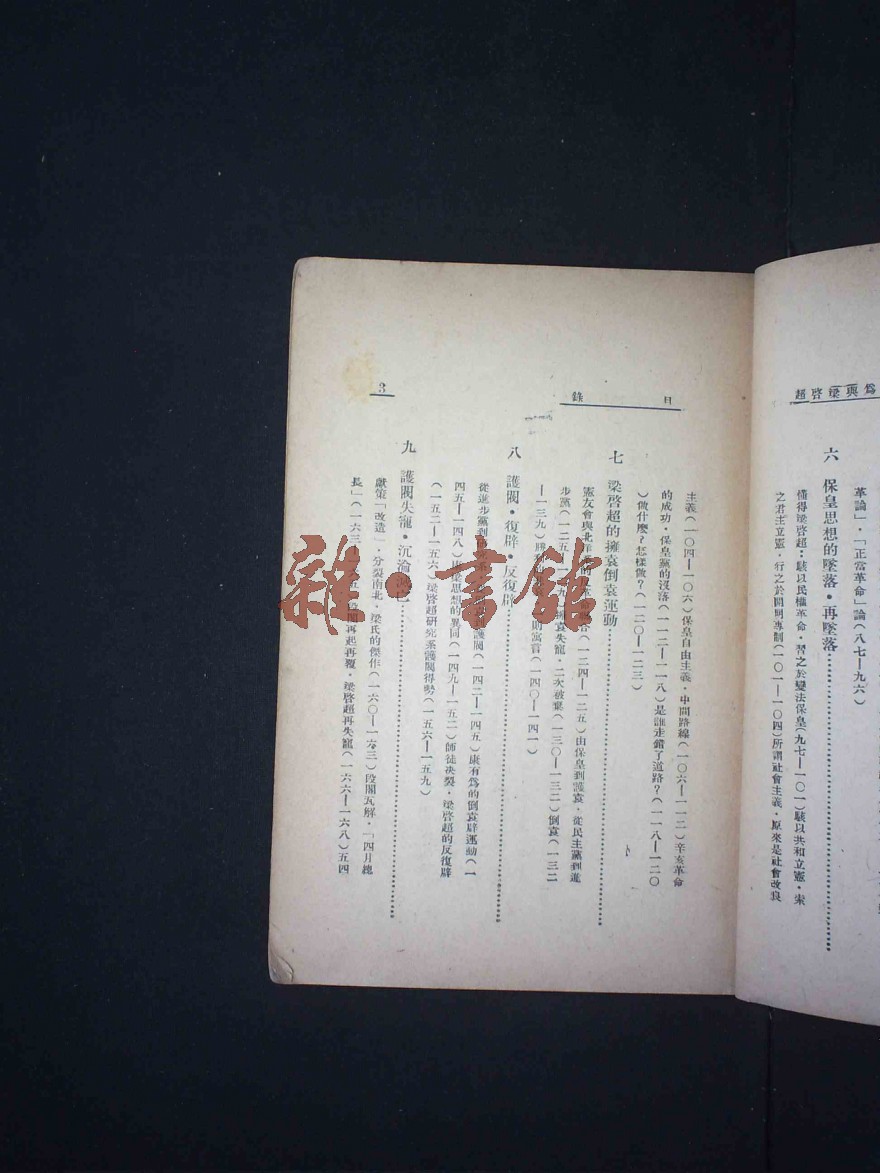 爲與梁啓超
革論」．「正當革命」論（八七—九六）
六　保皇思想的墜落・再墜落
懂得梁啓超：駭以民權革命．習之於變法保皇（九七—一〇一）駭以共和立憲．束
之君主立憲．行之於開明專制（一〇一—一〇四）所謂社會主義．原來是社會改良
目錄
主義（一〇四—一〇六）保皇自由主義．中間路線（一〇六—一一二）辛亥革命
的成功．保皇黨的沒落（一一三—一一八）是誰走錯了道路？（一一八—一二〇
）做什麼？怎樣做？（一二〇—一二三）
七　梁啓超的擁袁倒袁運動
憲友會與北洋（一二四—一二五）由保皇到護袁．從民主黨到進
步黨（一二五 袁失寵．二次破棄（一三〇—一三二）倒袁（一三二
—一三九） 則寓言（一四〇—一四一）
八　護閥・復辟・反復辟
從進步黨到 到護閥（一四二—一四五）康有爲的倒袁辟運動（一
四五—一四八）康梁思想的異同（一四九—一五二）師徒決裂．梁啓超的反復辟
（一五二—一五六）梁啓超研究系護閥得勢（一五六—一五九）
九　護閥失寵・沉淪
獻策「改造」．分裂南北．梁氏的傑作（一六〇—一六三）段閥瓦解．「四月總
長」（一六三—一六五）段閥再起再覆．梁啓超再失寵（一六六—一六八）五四
3
雜・書館